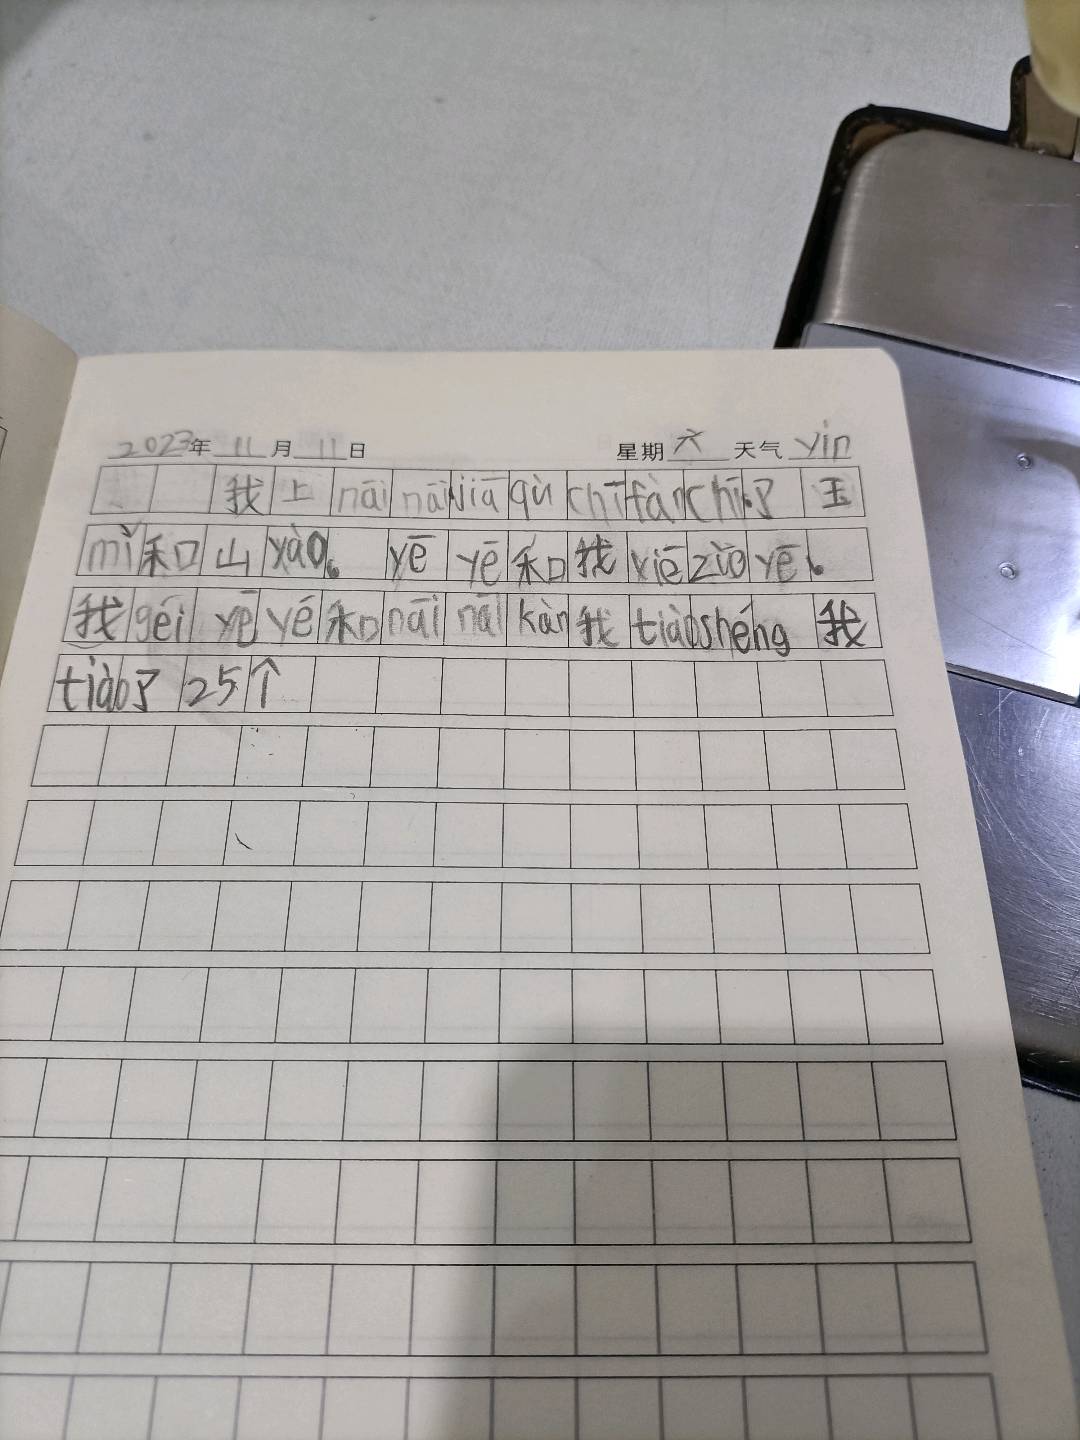 2023年 11 月 11 日 星期 六 天气 yīn
我上nāi nāi jiā qù chī fàn chī了玉
mǐ和山yào。yē yē和我xiě zuò yē。
我gěi yē yé和nāi nāi kàn我tiàoshéng我
tiào了25个